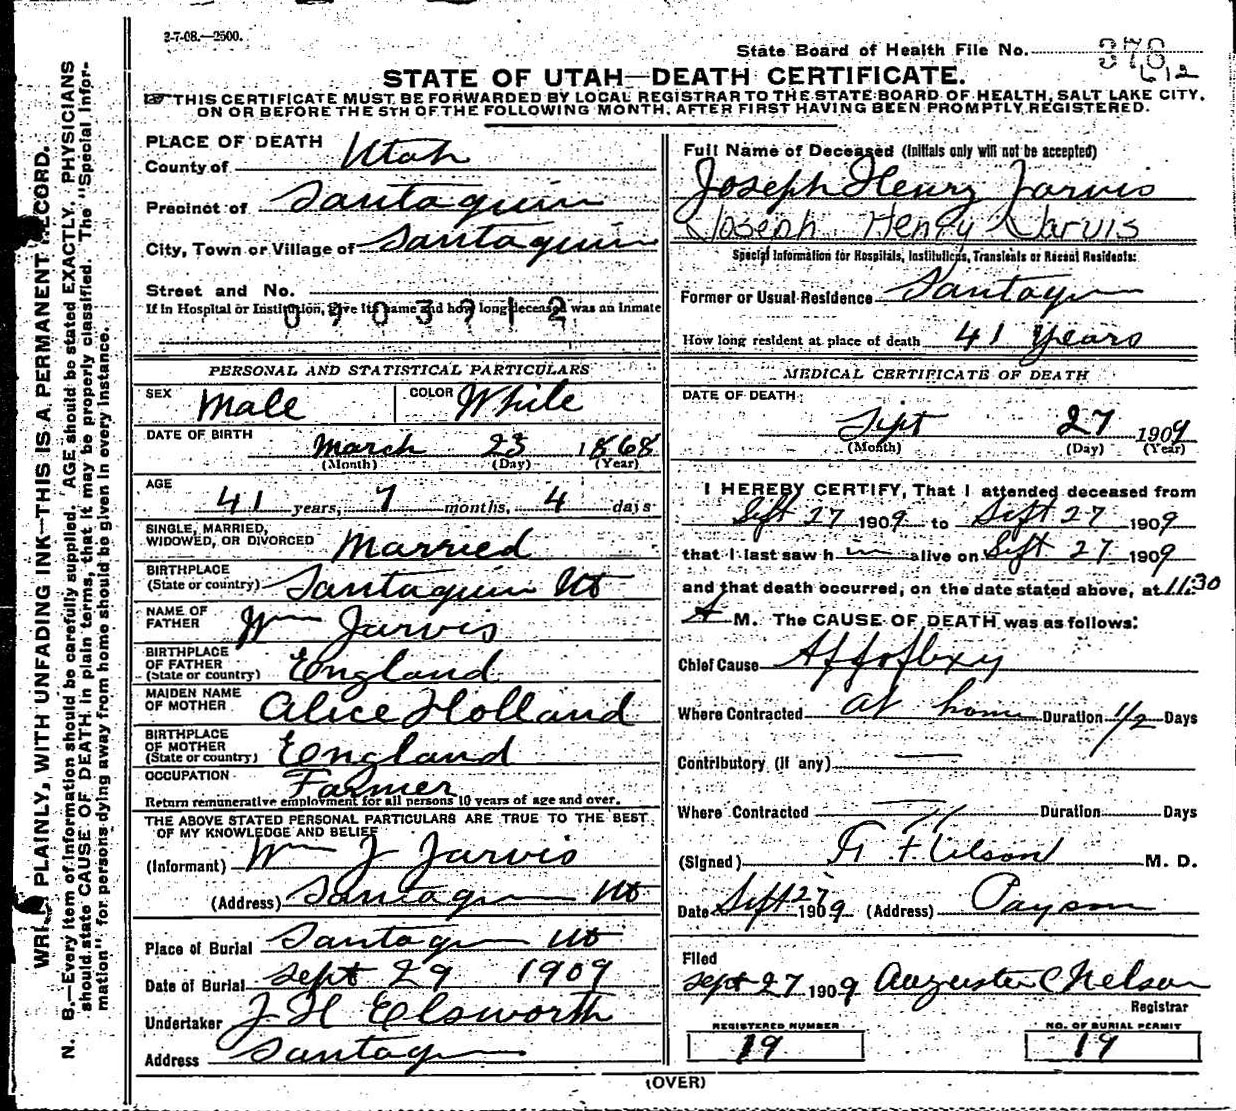 2-7-08.—2500.
State Board of Health File No. 376
612
STATE OF UTAH—DEATH CERTIFICATE.
THIS CERTIFICATE MUST BE FORWARDED BY LOCAL REGISTRAR TO THE STATE BOARD OF HEALTH, SALT LAKE CITY,
ON OR BEFORE THE 5TH OF THE FOLLOWING MONTH, AFTER FIRST HAVING BEEN PROMPTLY REGISTERED.
WRITE PLAINLY, WITH UNFADING INK—THIS IS A PERMANENT RECORD.
N. B.—Every item of information should be carefully supplied. AGE should be stated EXACTLY. PHYSICIANS
should state CAUSE OF DEATH in plain terms, that it may be properly classified. The "Special Infor-
mation" for persons dying away from home should be given in every instance.
PLACE OF DEATH
County of Utah
Precinct of Santaquin
City, Town or Village of Santaquin
Street and No.
If in Hospital or Institution, give its name and how long deceased was an inmate
0703712
PERSONAL AND STATISTICAL PARTICULARS
SEX Male COLOR White
DATE OF BIRTH March 23 1868
(Month) (Day) (Year)
AGE 41 years, 7 months, 4 days
SINGLE, MARRIED,
WIDOWED, OR DIVORCED Married
BIRTHPLACE
(State or country) Santaquin Ut
NAME OF
FATHER Wm Jarvis
BIRTHPLACE
OF FATHER
(State or country) England
MAIDEN NAME
OF MOTHER Alice Holland
BIRTHPLACE
OF MOTHER
(State or country) England
OCCUPATION Farmer
Return remunerative employment for all persons 10 years of age and over.
THE ABOVE STATED PERSONAL PARTICULARS ARE TRUE TO THE BEST
OF MY KNOWLEDGE AND BELIEF
(Informant) Wm J Jarvis
(Address) Santaquin Ut
Place of Burial Santaquin Ut
Date of Burial Sept 29 1909
Undertaker J H Elsworth
Address Santaquin
Full Name of Deceased (Initials only will not be accepted)
Joseph Henry Jarvis
Joseph Henry Jarvis
Special Information for Hospitals, Institutions, Transients or Recent Residents:
Former or Usual Residence Santaquin
How long resident at place of death 41 Years
MEDICAL CERTIFICATE OF DEATH
DATE OF DEATH:
Sept 27 1909
(Month) (Day) (Year)
I HEREBY CERTIFY, That I attended deceased from
Sept 27 1909 to Sept 27 1909
that I last saw him alive on Sept 27 1909
and that death occurred, on the date stated above, at 11:30
A M. The CAUSE OF DEATH was as follows:
Chief Cause Appoplexy
Where Contracted at home Duration 1/2 Days
Contributory (if any)
Where Contracted Duration Days
(Signed) M. D.
Date Sept 27 1909 (Address) Payson
Filed
Sept 27 1909 Nelson
Registrar
REGISTERED NUMBER
19
NO. OF BURIAL PERMIT
19
(OVER)